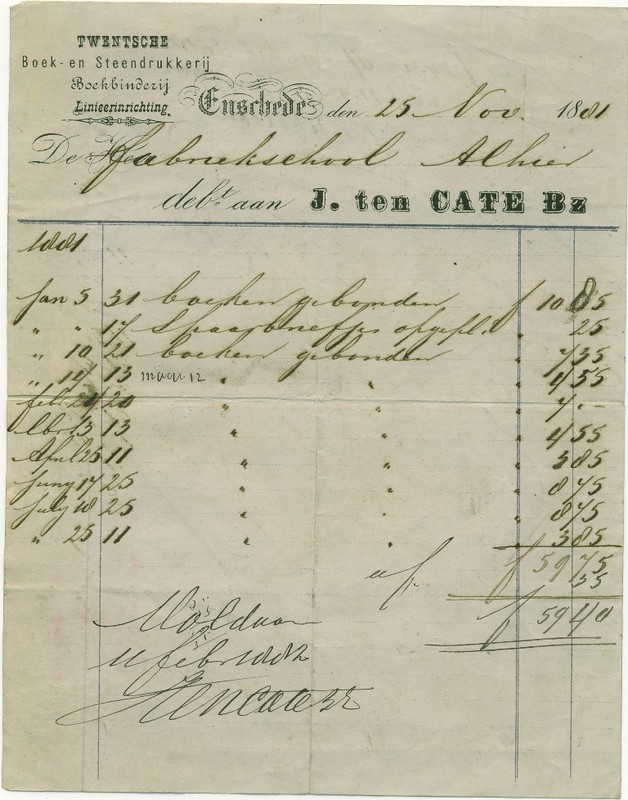 TWENTSCHE
Boek- en Steendrukkerij
Boekbinderij
Linieerinrichting
Enschede den 25 Nov. 1881
De Heer Fabriekschool Alhier
debt. aan J. ten CATE Bz
1881
Jan 5 31 boeken gebonden f 10 85
" " 17 Spaarbriefjes opgepl. " 25
" 10 21 boeken gebonden " 7 35
" 14 13 maar 12 " " " 4 55
febr. 24 20 " " " 7 . -
13 13 " " " 4 55
April 25 11 " " " 3 85
Juny 17 25 " " " 8 75
July 18 25 " " " 8 75
" 25 11 " " " 3 85
f 59 75
af 35
f 59 40
Voldaan
11 febr 1882
J tenCate Bz